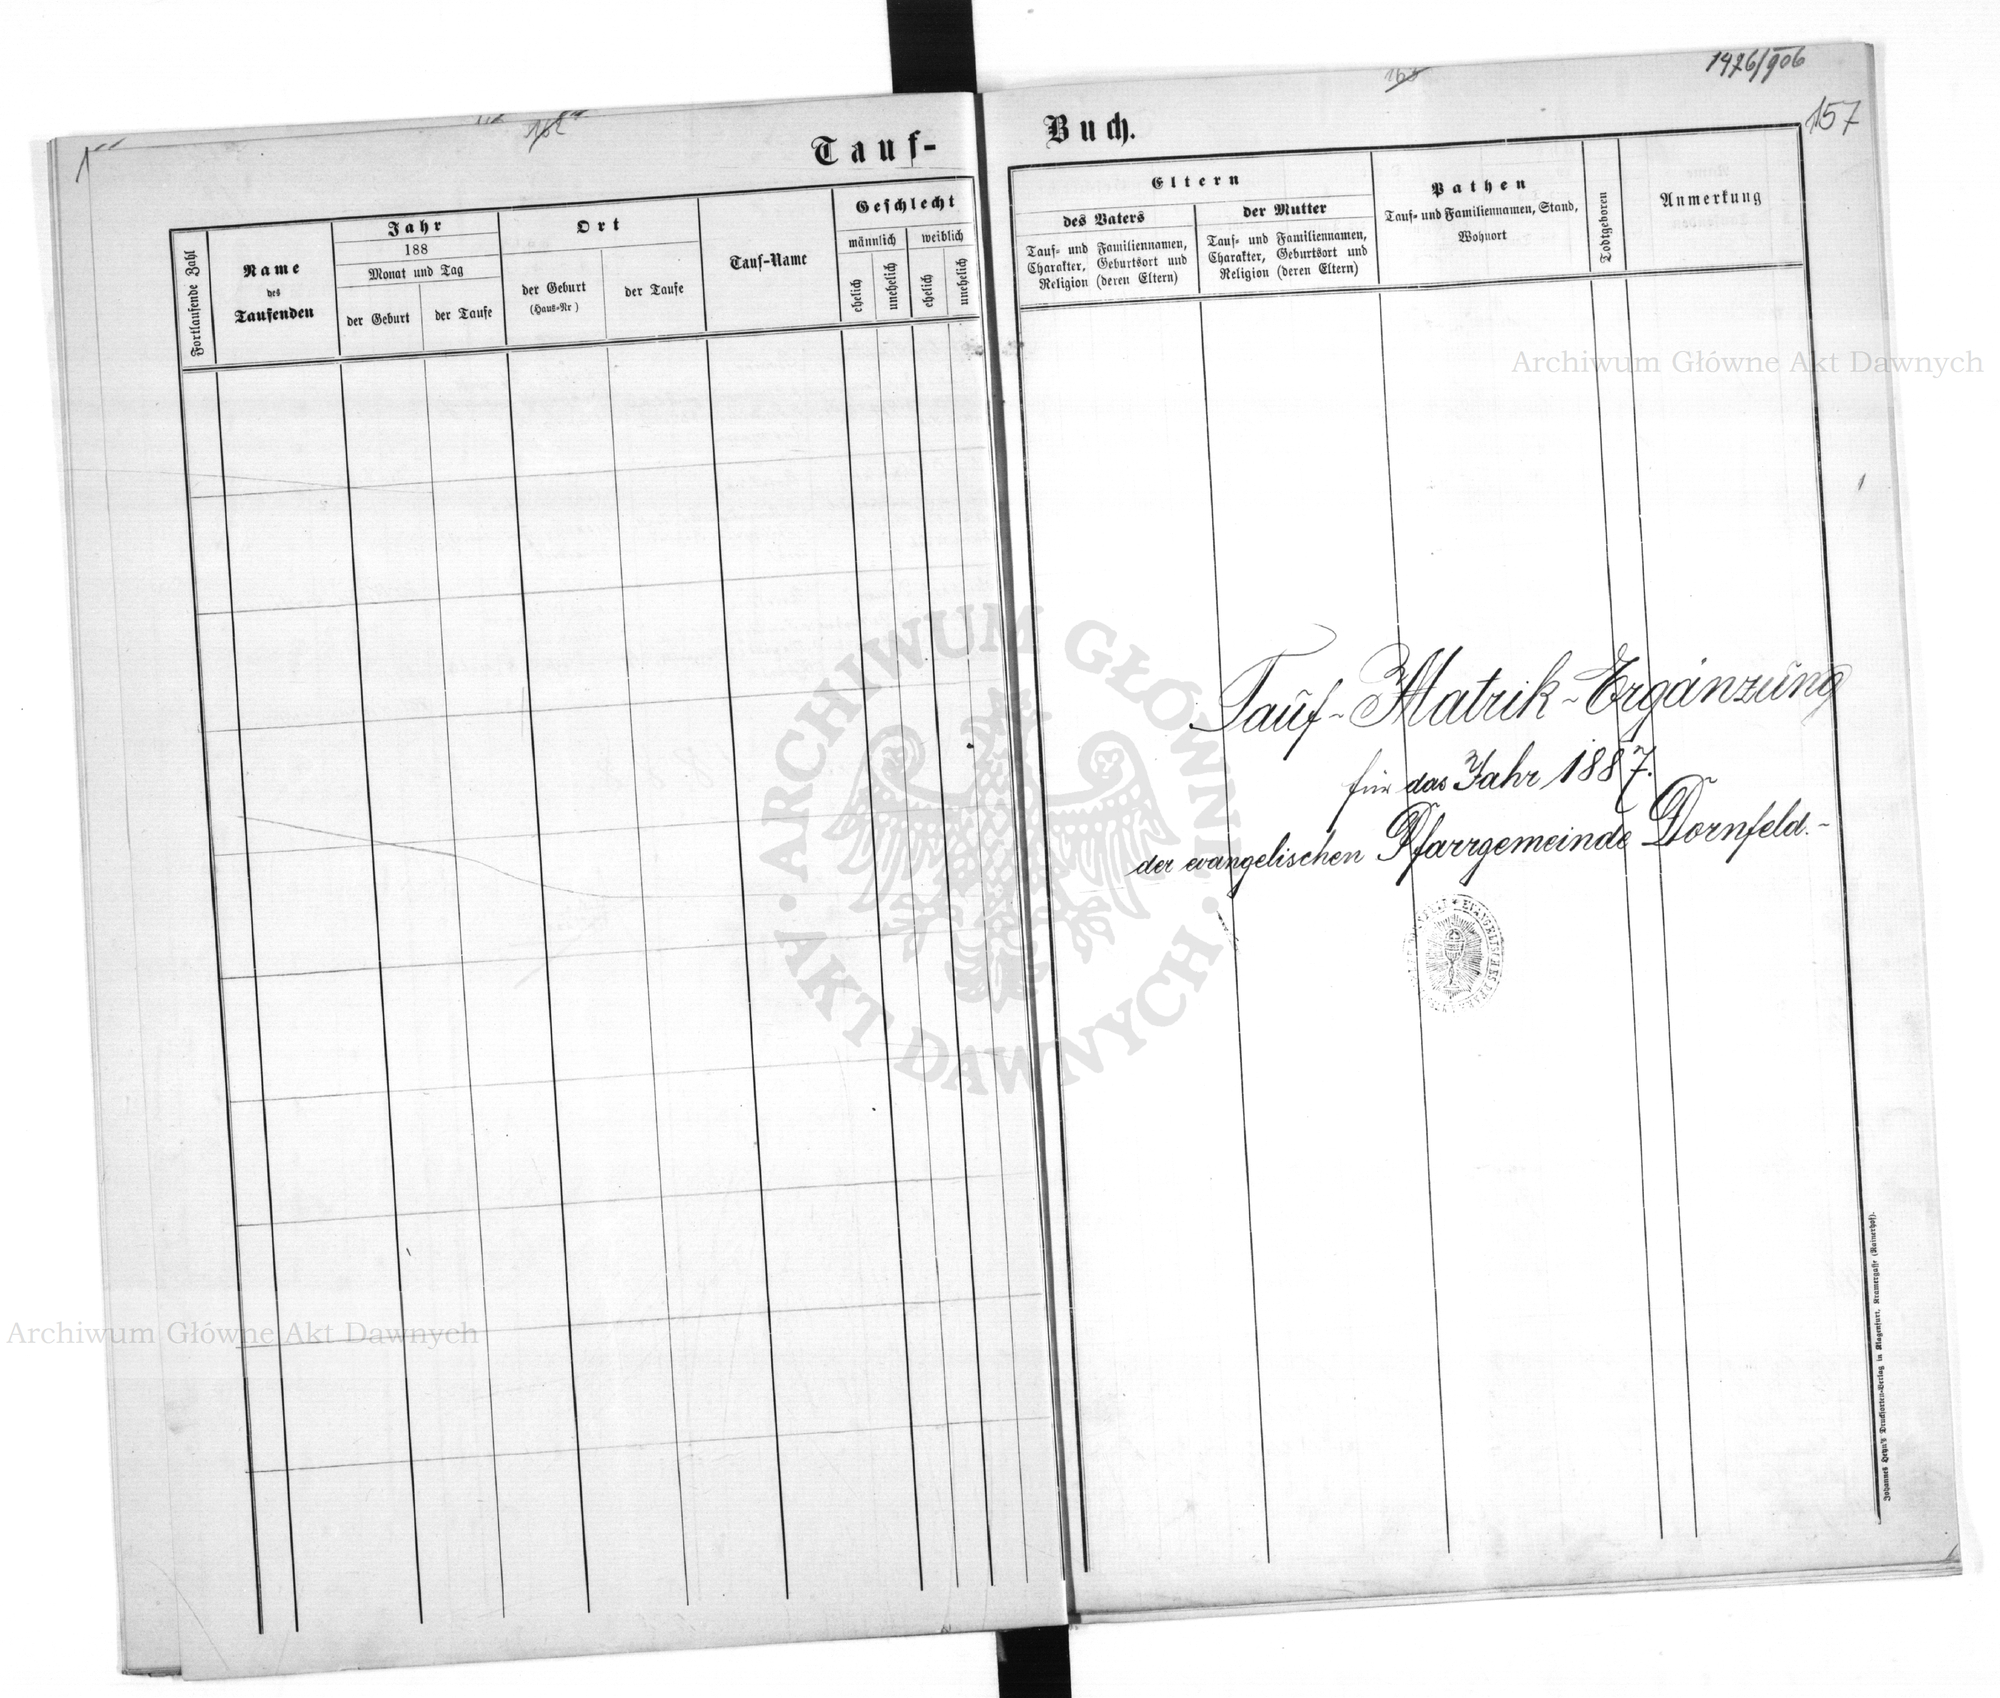 Tauf-
Fortlaufende Zahl
Name
des
Taufenden
Jahr
188
Monat und Tag
der Geburt
der Taufe
Ort
der Geburt
(Haus-Nr)
der Taufe
Tauf-Name
Geschlecht
männlich
weiblich
ehelich
unehelich
ehelich
unehelich
1426/906
157
Buch.
Eltern
des Vaters
Tauf- und Familiennamen,
Charakter, Geburtsort und
Religion (deren Eltern)
der Mutter
Tauf- und Familiennamen,
Charakter, Geburtsort und
Religion (deren Eltern)
Pathen
Tauf- und Familiennamen, Stand,
Wohnort
Todtgeboren
Anmerkung
Tauf-Matrik-Ergänzung
für das Jahr 1887.
der evangelischen Pfarrgemeinde Dornfeld.-
Johannes Heyn's Drucksorten-Verlag in Klagenfurt, Kramergasse (Rainerhof).
Archiwum Główne Akt Dawnych
ARCHIWUM GŁÓWNE
AKT DAWNYCH
Archiwum Główne Akt Dawnych